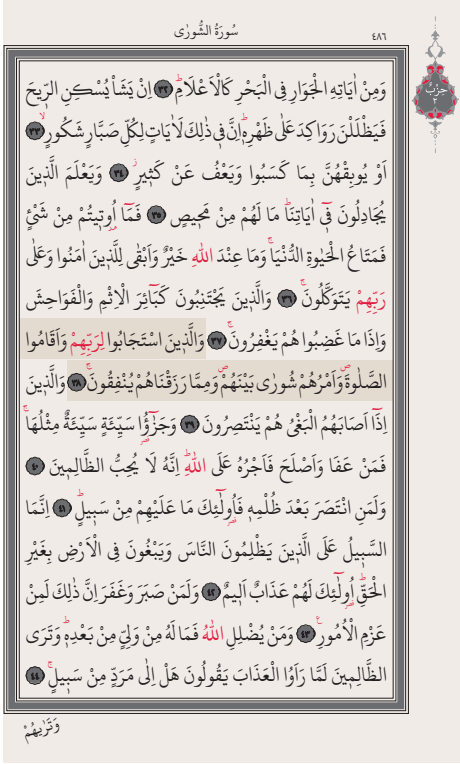 سُورَةُ الشُّورٰى
٤٨٦
حِزْبٌ
وَمِنْ اٰيَاتِهِ الْجَوَارِ فِي الْبَحْرِ كَالْاَعْلَامِۜ ﴿٣٢﴾ اِنْ يَشَأْ يُسْكِنِ الرّ۪يحَ
فَيَظْلَلْنَ رَوَاكِدَ عَلٰى ظَهْرِه۪ۜ اِنَّ ف۪ي ذٰلِكَ لَاٰيَاتٍ لِكُلِّ صَبَّارٍ شَكُورٍۙ ﴿٣٣﴾
اَوْ يُوبِقْهُنَّ بِمَا كَسَبُوا وَيَعْفُ عَنْ كَث۪يرٍۘ ﴿٣٤﴾ وَيَعْلَمَ الَّذ۪ينَ
يُجَادِلُونَ ف۪ٓي اٰيَاتِنَاۜ مَا لَهُمْ مِنْ مَح۪يصٍ ﴿٣٥﴾ فَمَٓا اُو۫ت۪يتُمْ مِنْ شَيْءٍ
فَمَتَاعُ الْحَيٰوةِ الدُّنْيَاۚ وَمَا عِنْدَ اللّٰهِ خَيْرٌ وَاَبْقٰى لِلَّذ۪ينَ اٰمَنُوا وَعَلٰى
رَبِّهِمْ يَتَوَكَّلُونَۚ ﴿٣٦﴾ وَالَّذ۪ينَ يَجْتَنِبُونَ كَبَٓائِرَ الْاِثْمِ وَالْفَوَاحِشَ
وَاِذَا مَا غَضِبُوا هُمْ يَغْفِرُونَۚ ﴿٣٧﴾ وَالَّذ۪ينَ اسْتَجَابُوا لِرَبِّهِمْ وَاَقَامُوا
الصَّلٰوةَۖ وَاَمْرُهُمْ شُورٰى بَيْنَهُمْۖ وَمِمَّا رَزَقْنَاهُمْ يُنْفِقُونَۚ ﴿٣٨﴾ وَالَّذ۪ينَ
اِذَٓا اَصَابَهُمُ الْبَغْيُ هُمْ يَنْتَصِرُونَ ﴿٣٩﴾ وَجَزٰٓؤُ۬ا سَيِّئَةٍ سَيِّئَةٌ مِثْلُهَاۚ
فَمَنْ عَفَا وَاَصْلَحَ فَاَجْرُهُ عَلَى اللّٰهِۜ اِنَّهُ لَا يُحِبُّ الظَّالِم۪ينَ ﴿٤٠﴾
وَلَمَنِ انْتَصَرَ بَعْدَ ظُلْمِه۪ فَاُو۬لٰٓئِكَ مَا عَلَيْهِمْ مِنْ سَب۪يلٍۜ ﴿٤١﴾ اِنَّمَا
السَّب۪يلُ عَلَى الَّذ۪ينَ يَظْلِمُونَ النَّاسَ وَيَبْغُونَ فِي الْاَرْضِ بِغَيْرِ
الْحَقِّۜ اُو۬لٰٓئِكَ لَهُمْ عَذَابٌ اَل۪يمٌ ﴿٤٢﴾ وَلَمَنْ صَبَرَ وَغَفَرَ اِنَّ ذٰلِكَ لَمِنْ
عَزْمِ الْاُمُورِ۟ ﴿٤٣﴾ وَمَنْ يُضْلِلِ اللّٰهُ فَمَا لَهُ مِنْ وَلِيٍّ مِنْ بَعْدِه۪ۜ وَتَرَى
الظَّالِم۪ينَ لَمَّا رَاَوُا الْعَذَابَ يَقُولُونَ هَلْ اِلٰى مَرَدٍّ مِنْ سَب۪يلٍۚ ﴿٤٤﴾
وَتَرٰيهُمْ